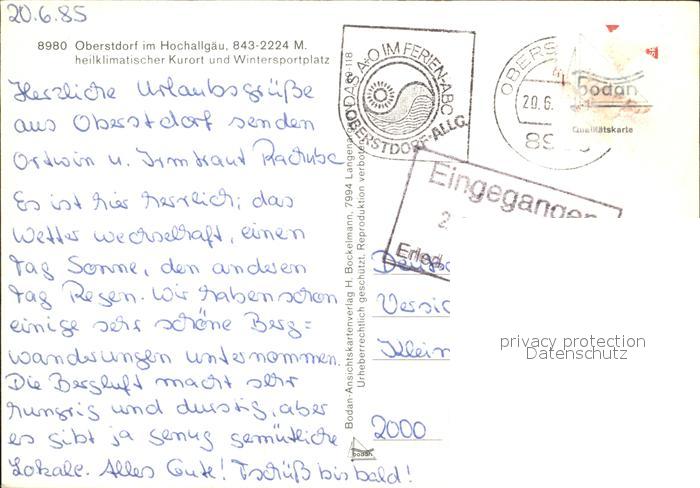 20.6.85
8980 Oberstdorf im Hochallgäu, 843-2224 M.
heilklimatischer Kurort und Wintersportplatz
Herzliche Urlaubsgrüße
aus Oberstdorf senden
Ortwin u. Irmtraut
Es ist hier herrlich; das
Wetter wechselhaft, einen
Tag Sonne, den anderen
Tag Regen. Wir haben schon
einige sehr schöne Berg=
wanderungen unternommen.
Die Bergluft macht sehr
hungrig und durstig, aber
es gibt ja genug gemütliche
Lokale. Alles Gute! Tschüß bis bald!
Bodan-Ansichtskartenverlag H. Bockelmann, 7994 Langenargen
Urheberrechtlich geschützt. Reproduktion verboten
bodan
DAS A+O IM FERIEN-ABC
OBERSTDORF-ALLG.
OBERS
20.6.
bodan
Qualitätskarte
Eingegangen
2
Erled
Versic
Klein
2000
privacy protection
Datenschutz